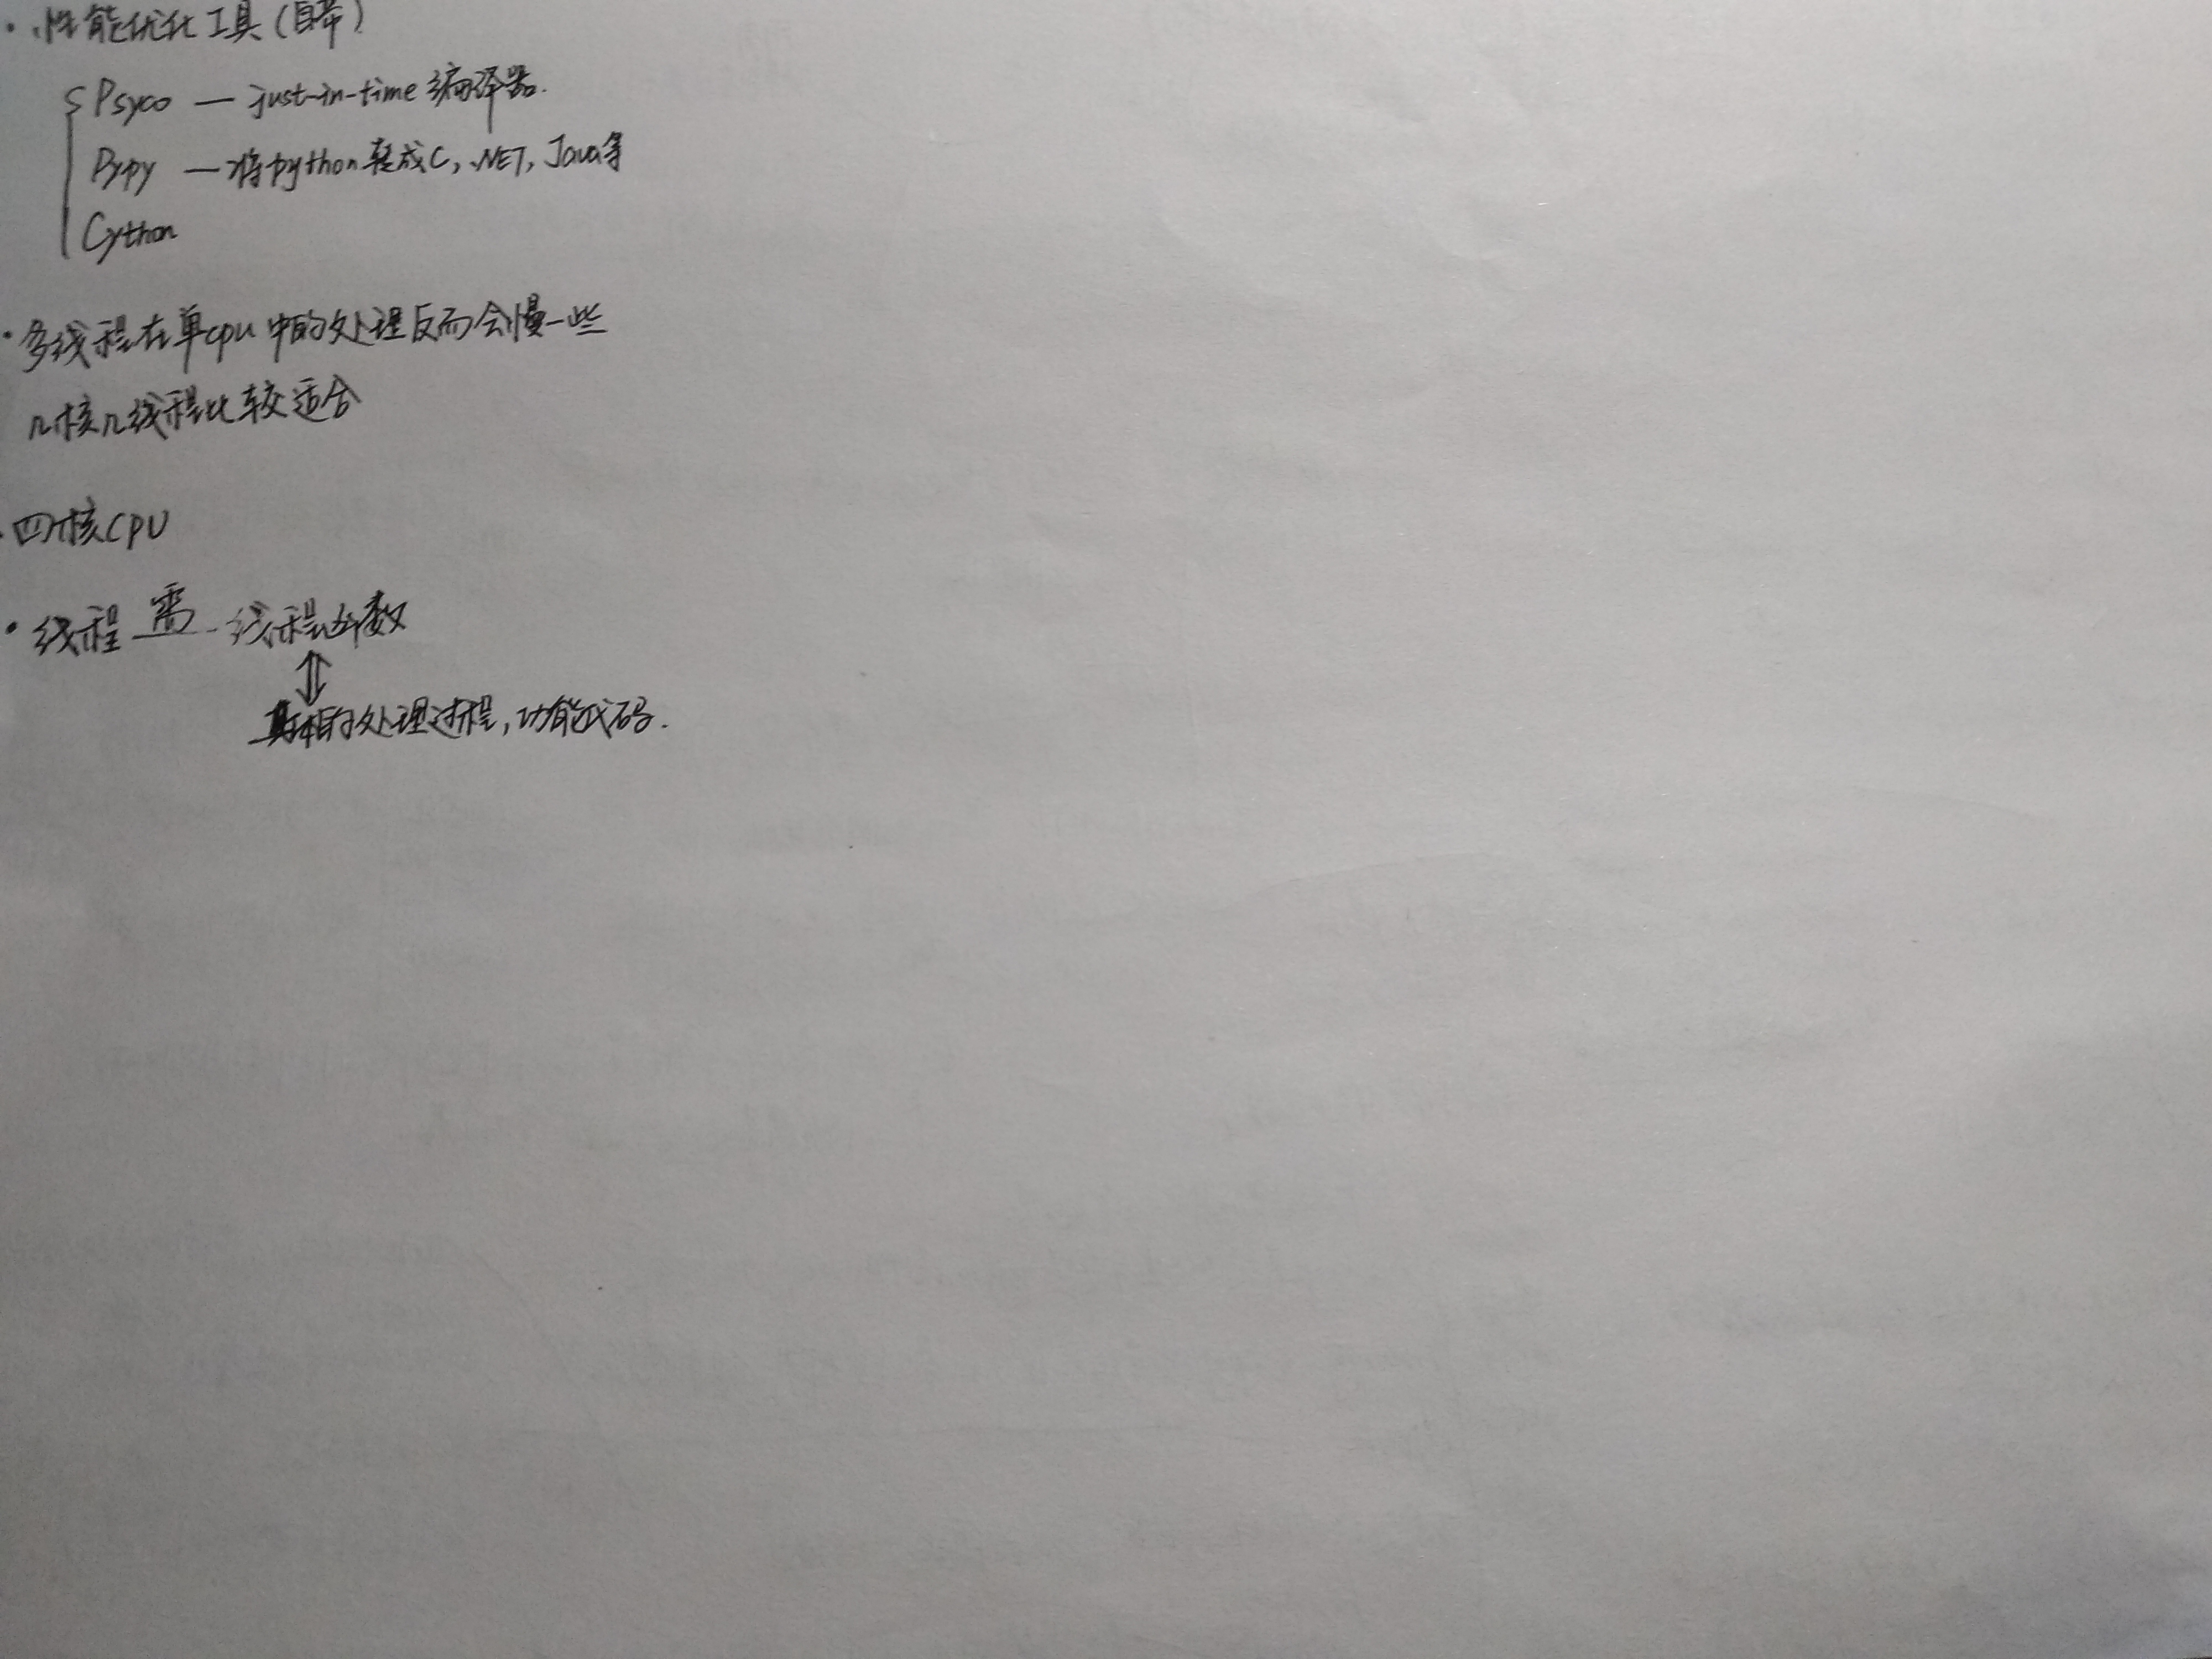 · 性能优化工具(自带)
Psyco — just-in-time 编译器.
Pypy — 将python转成C, .NET, Java等
Cython
· 多线程在单cpu中的处理反而会慢一些
n核n线程比较适合
· 四核CPU
· 线程 需 线程数
⇕
的处理过程,功能代码.